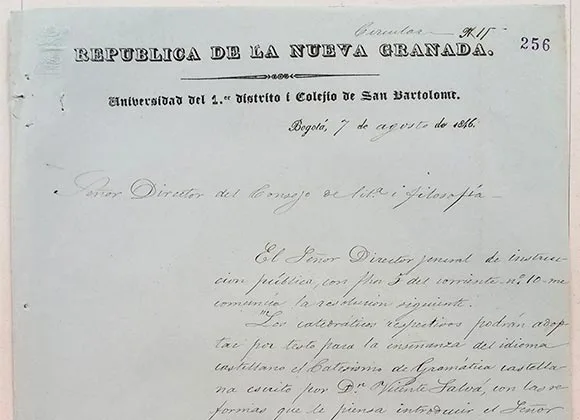 Circular Nº 11
256
REPUBLICA DE LA NUEVA GRANADA.
Universidad del 1.er distrito i Colejio de San Bartolome.
Bogotá, 7 de agosto de 1846.
Señor Director del Consejo de lit.a i filosofía
El Señor Director jeneral de instruc
cion pública, con fha 5 del corriente nº 10 me
comunica la resolucion siguiente.
"Los catedráticos respectivos podrán adop
tar por testo para la enseñanza del idioma
castellano el Catecismo de Gramática castella
na escrito por Dn. Vicente Salvá, con las re
formas que le piensa introducir el Señor